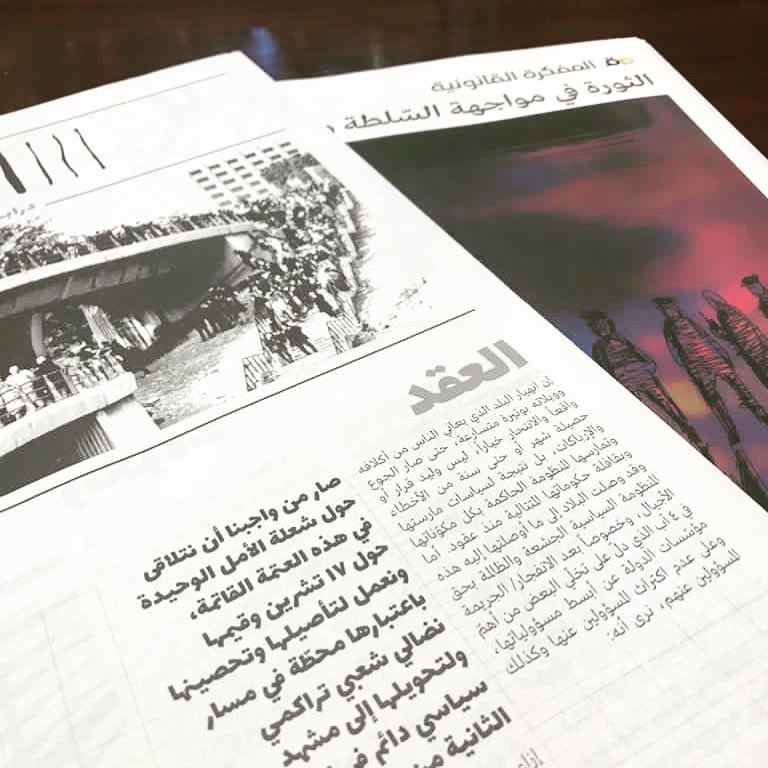 المفكرة القانونية
الثورة في مواجهة السّلطة
العقد
إن انهيار البلد الذي يعاني الناس من أكلافه
وويلاته بوتيرة متسارعة، حتى صار الجوع
واقعاً والانتحار خياراً، ليس وليد قرار أو
حصيلة شهر أو حتى سنة من الأخطاء
والإرباكات، بل نتيجة لسياسات مارستها
وتمارسها المنظومة الحاكمة بكل مكوّناتها
وبقافلة حكوماتها المتتالية منذ عقود. أما
وقد وصلت البلاد إلى ما أوصلتها إليه هذه
المنظومة السياسية الجشعة والظالمة بحق
الأجيال، وخصوصاً بعد الانفجار/ الجريمة
في ٤ آب الذي دل على تخلّي البعض من أهمّ
مؤسسات الدولة عن أبسط مسؤولياتها،
وعلى عدم اكتراث المسؤولين عنها وكذلك
المسؤولين عنهم، نرى أنه:
صار من واجبنا أن نتلاقى
حول شعلة الأمل الوحيدة
في هذه العتمة القاتمة،
حول ١٧ تشرين وقيمها
ونعمل لتأصيلها وتحصينها
باعتبارها محطّة في مسار
نضالي شعبي تراكمي
ولتحويلها إلى مشهد
سياسي دائم في
الثانية من
إزاء